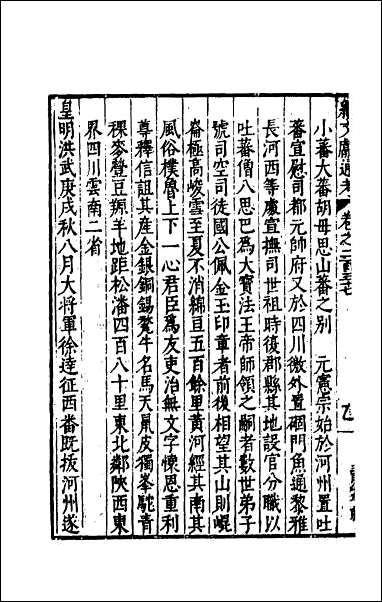 續文獻通考 卷之二百三十七
小蕃大蕃胡母思山蕃之別 元憲宗始於河州置吐
蕃宣慰司都元帥府又於四川徼外置碉門魚通黎雅
長河西等處宣撫司世祖時復郡縣其地設官分職以
吐蕃僧八思巴為大寶法王帝師領之嗣者數世弟子
號司空司徒國公佩金玉印章者前後相望其山則崐
崙極高峻雪至夏不消綿亘五百餘里黃河經其南其
風俗樸魯上下一心君臣為友吏治無文字懷恩重利
尊釋信詛其產金銀銅錫犛牛名馬天鼠皮獨峯駝青
稞麥䝁豆羱羊地距松潘四百八十里東北鄰陝西東
界四川雲南二省
皇明洪武庚戌秋八月大將軍徐達征西番既拔河州遂